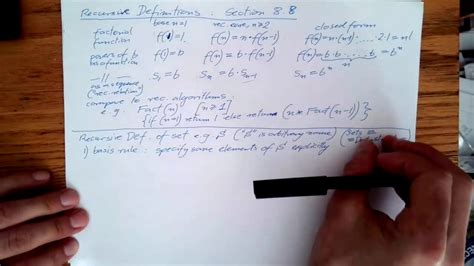 Recursive Definitions : Section 8.8
base n=1 rec. case, n≥2 closed form
factorial function f(1)=1 f(n)=n·f(n-1) f(n)=n·(n-1)·...·2·1=n!
powers of b as a function f(1)=b f(n)=b·f(n-1) f(n)=b·b·...·b=bⁿ
n
-||- as a sequence ("rec. relation") S₁=b Sₙ=b·Sₙ₋₁ Sₙ=bⁿ
compare to rec. algorithms:
e.g. Fact(n) (n≥1)
{if (n=1) return 1 else return (n * Fact(n-1))}
Recursive Def. of set e.g. S ("S" is arbitrary name) (Sets
1) basis rule: specify some elements of S explicitly